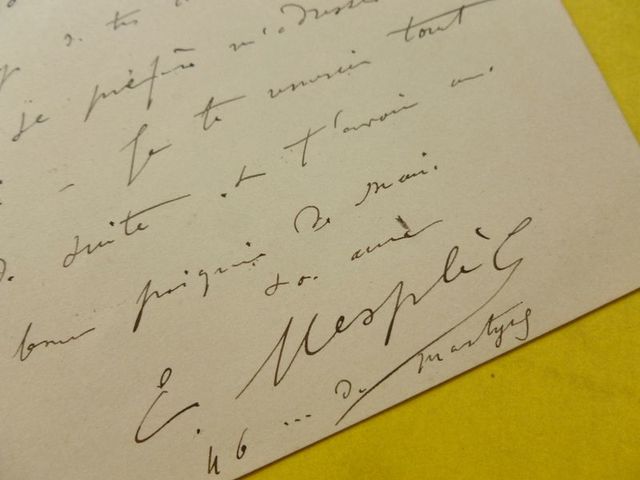 de tes
je préfère m'adresser
Je te verrai tout
de suite et t'avoir
bonne poignée de main.
ton ami
E. Mesplès
46 ... des martyrs